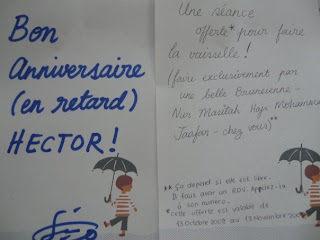 Bon
Anniversaire
(en retard)
HECTOR!
Une séance
offerte* pour faire
la vaisselle!
(faire exclusivement par
une belle Bruneienne -
Nur Maulah Haji Mohammad
Jaafar - chez vous)**
** Ça dépend si elle est libre.
Il faut avoir un RDV. Appelez-la
à son numéro.
* cette offerte est valable de
13 Octobre 2009 au 13 Novembre